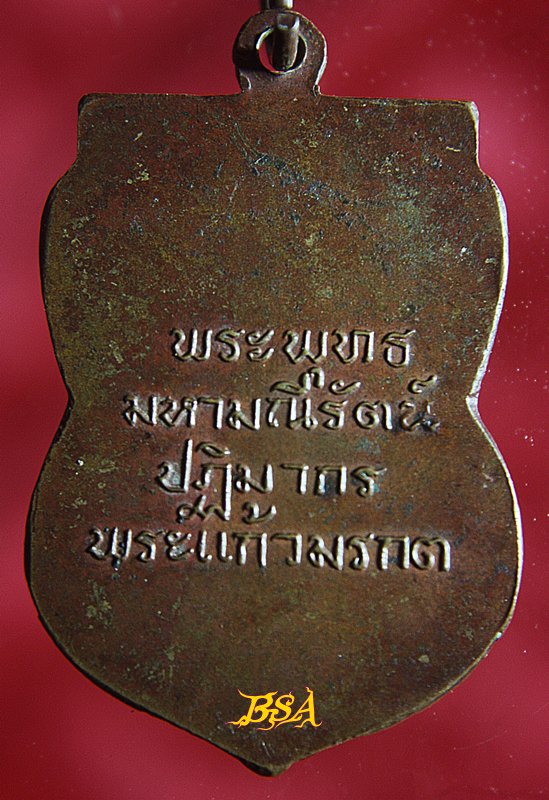 พระพุทธ
มหามณีรัตน์
ปฏิมากร
พระแก้วมรกต
BSA